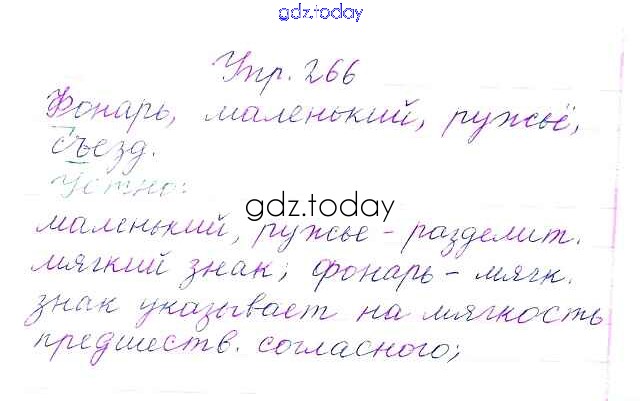 gdz.today
Упр. 266
Фонарь, маленький, ружьё,
съезд.
Устно:
gdz.today
маленький, ружье - разделит.
мягкий знак; фонарь - мягк.
знак указывает на мягкость
предшеств. согласного;